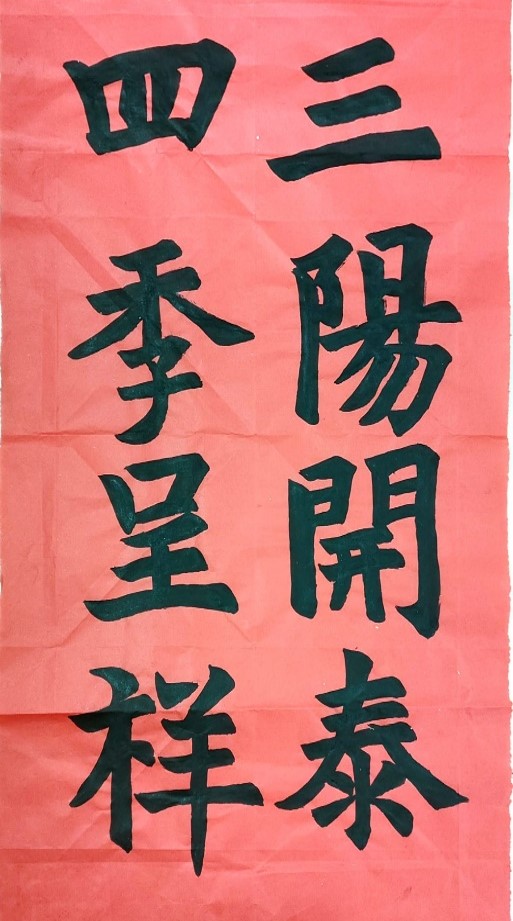 三陽開泰
四季呈祥